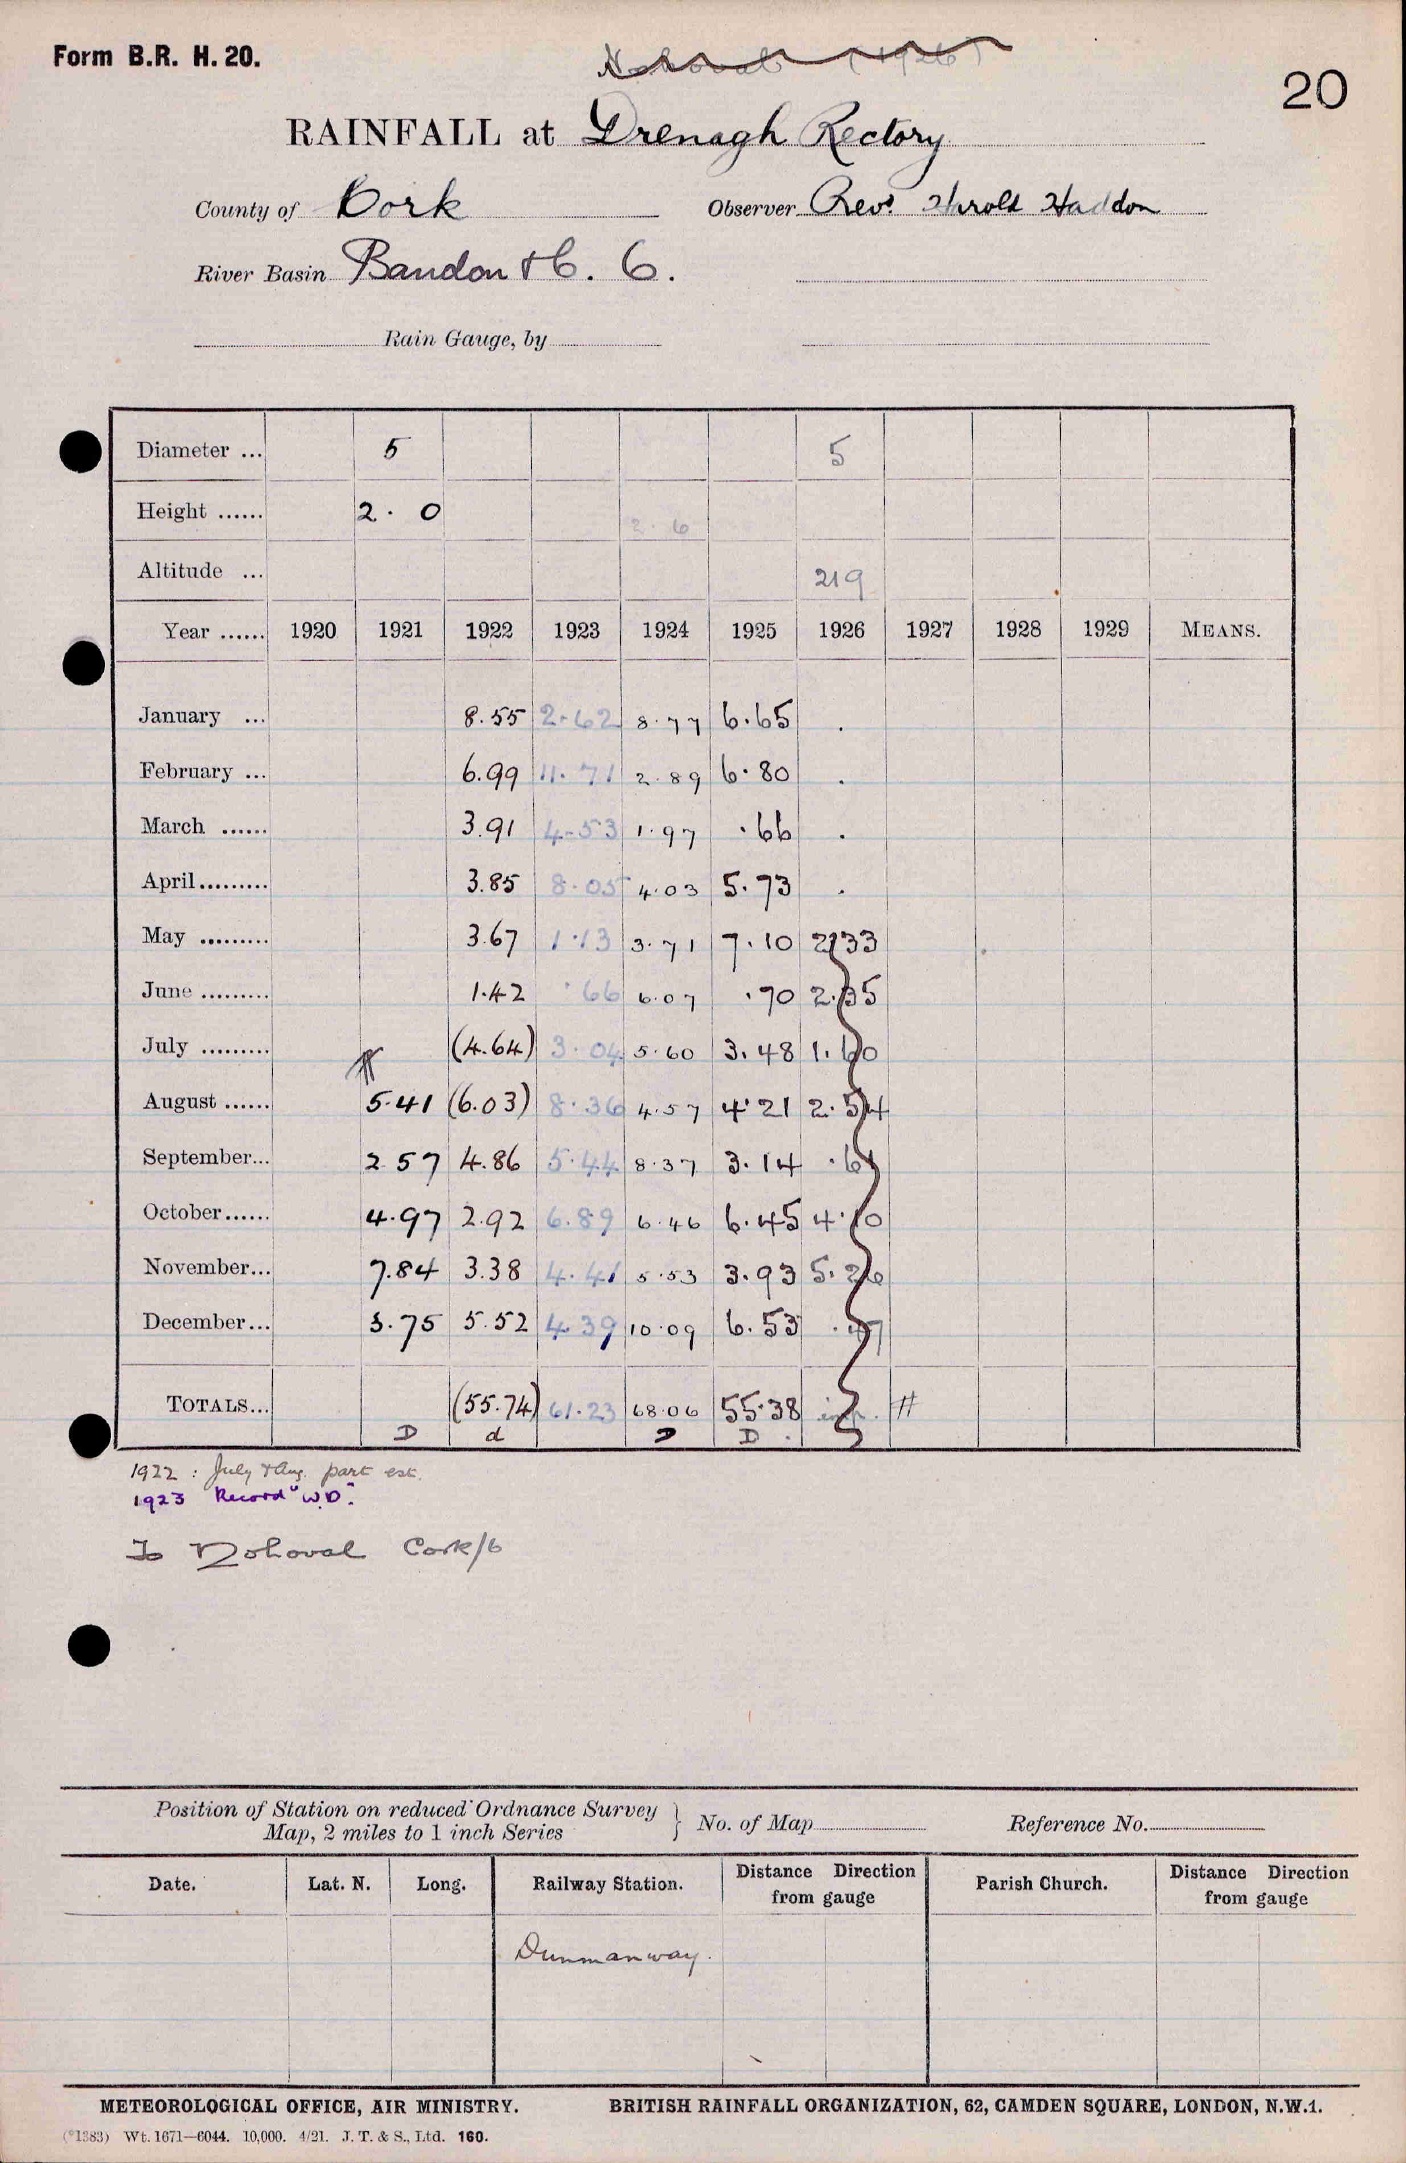 Form B.R. H. 20.
Nohoval (1926)
20
RAINFALL at Drenagh Rectory
County of Cork Observer Revd. Harold Haddon
River Basin Bandon &c. 6.
Rain Gauge, by
Diameter ... 5 5
Height ...... 2 . 0 2 . 6
Altitude ... 219
Year ...... 1920 1921 1922 1923 1924 1925 1926 1927 1928 1929 MEANS.
January ... 8.55 2.62 8.77 6.65 .
February ... 6.99 11.71 2.89 6.80 .
March ...... 3.91 4.53 1.97 .66 .
April......... 3.85 8.05 4.03 5.73 .
May ......... 3.67 1.13 3.71 7.10 2.33
June ......... 1.42 .66 6.07 .70 2.35
July ......... (4.64) 3.04 5.60 3.48 1.60
August ...... 5.41 (6.03) 8.36 4.57 4.21 2.54
September... 2.57 4.86 5.44 8.37 3.14 .61
October...... 4.97 2.92 6.89 6.46 6.45 4.10
November... 7.84 3.38 4.41 5.53 3.93 5.26
December... 3.75 5.52 4.39 10.09 6.53 .47
TOTALS... (55.74) 61.23 68.06 55.38 #
D d D D
1922 : July & Aug. part est.
1923 Record "W.D".
To Nohoval Cork/6
Position of Station on reduced Ordnance Survey
Map, 2 miles to 1 inch Series } No. of Map Reference No.
Date. Lat. N. Long. Railway Station. Distance Direction from gauge Parish Church. Distance Direction from gauge
Dunmanway.
METEOROLOGICAL OFFICE, AIR MINISTRY. BRITISH RAINFALL ORGANIZATION, 62, CAMDEN SQUARE, LONDON, N.W.1.
(*1383) Wt. 1671—6044. 10,000. 4/21. J. T. & S., Ltd. 160.